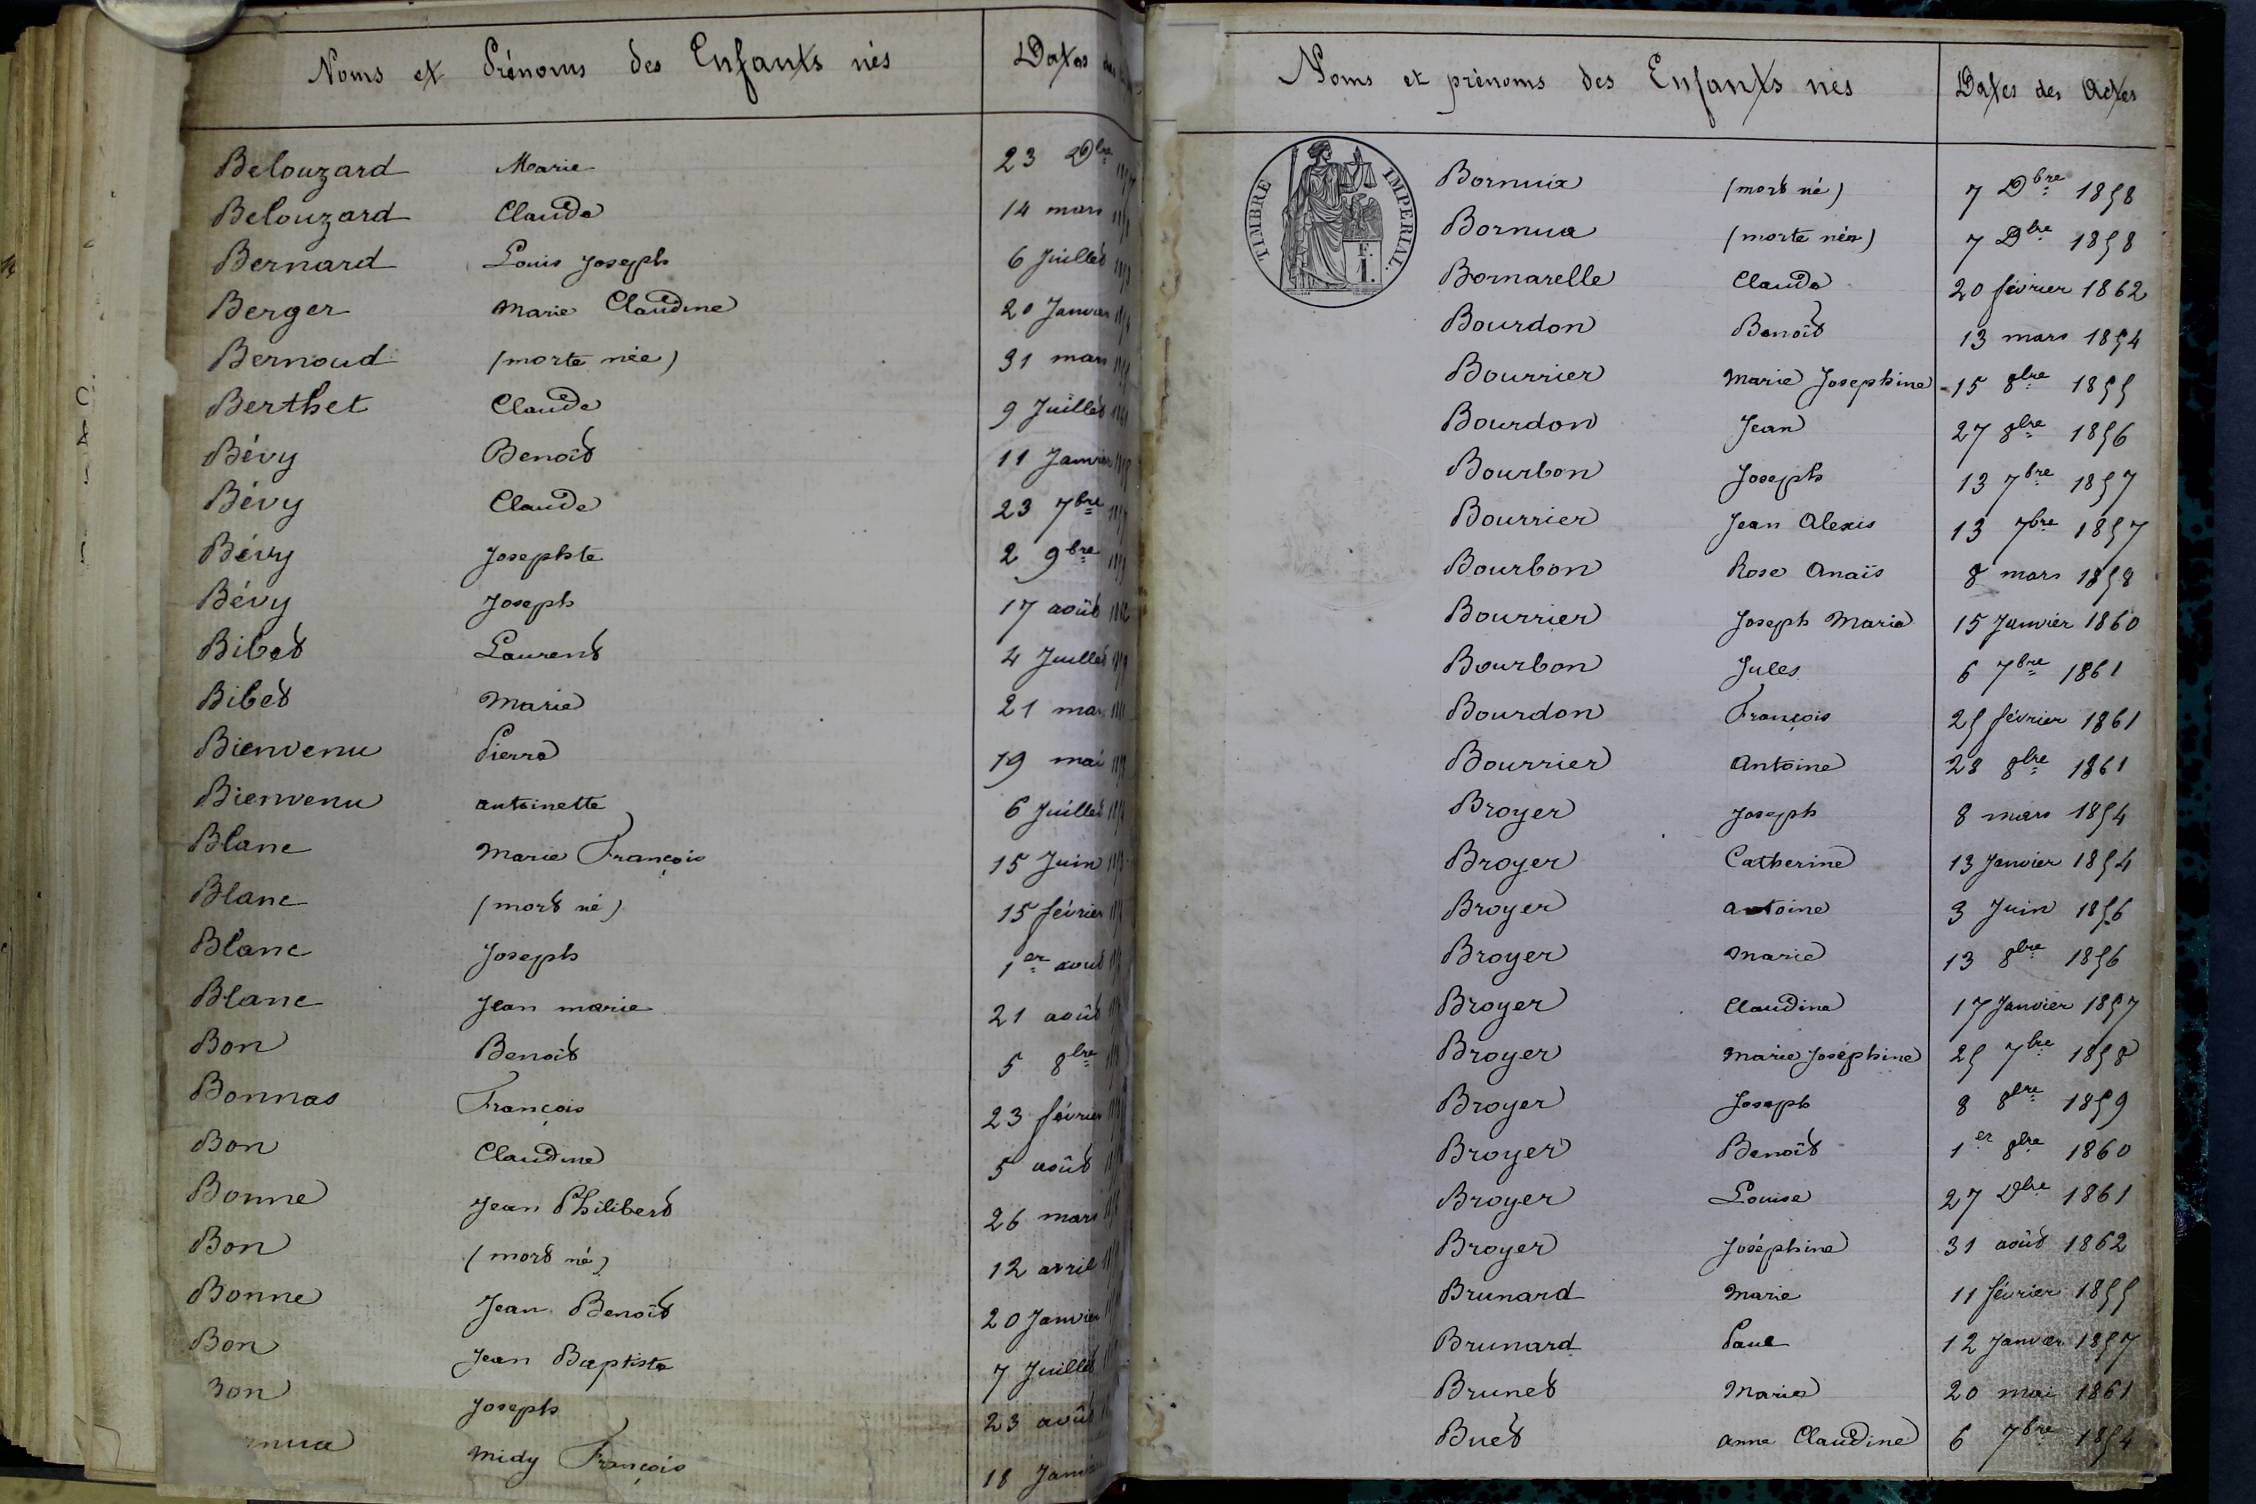 Noms et Prénoms des Enfants nés Dates
Belouzard Marie 23 Dbre
Belouzard Claude 14 mars
Bernard Louis Joseph 6 Juillet
Berger Marie Claudine 20 Janvier
Bernoud (morte née) 31 mars
Berthet Claude 9 Juillet
Bévy Benoît 11 Janvier
Bévy Claude 23 7bre
Bévy Josephte 2 9bre
Bévy Joseph 17 août
Bibet Laurent 4 Juillet
Bibet Marie 21
Bienvenu Pierre 19 mai
Bienvenu antoinette 6 Juillet
Blanc Marie François 15 Juin
Blanc (mort né) 15 février
Blanc Joseph 1er aout
Blanc Jean marie 21 août
Bon Benoît 5 8bre
Bonnas François 23 février
Bon Claudine 5 août
Bonne Jean Philibert 26 mars
Bon (mort né) 12 avril
Bonne Jean Benoît 20 Janvier
Bon Jean Baptiste 7 Juillet
Bon Joseph 23 août
Midy François 18
Noms et prénoms des Enfants nés Dates des Actes
TIMBRE IMPERIAL.
Bornua (mort né) 7 Dbre 1858
Bornua (morte née) 7 Dbre 1858
Bornarelle Claude 20 février 1862
Bourdon Benoît 13 mars 1854
Bourrier Marie Josephine 15 8bre 1855
Bourdon Jean 27 8bre 1856
Bourbon Joseph 13 7bre 1857
Bourrier Jean Alexis 13 7bre 1857
Bourbon Rose Anaïs 8 mars 1858
Bourrier Joseph Marie 15 Janvier 1860
Bourbon Jules 6 7bre 1861
Bourdon François 25 février 1861
Bourrier Antoine 28 8bre 1861
Broyer Joseph 8 mars 1854
Broyer Catherine 13 Janvier 1854
Broyer antoine 3 Juin 1856
Broyer Marie 13 8bre 1856
Broyer Claudine 17 Janvier 1857
Broyer Marie Joséphine 25 7bre 1858
Broyer Joseph 8 8bre 1859
Broyer Benoît 1er 8bre 1860
Broyer Louise 27 Dbre 1861
Broyer Joséphine 31 août 1862
Brunard Marie 11 février 1855
Brunard Paul 12 Janvier 1857
Brunet Marie 20 mai 1861
Buet anne Claudine 6 7bre 1854